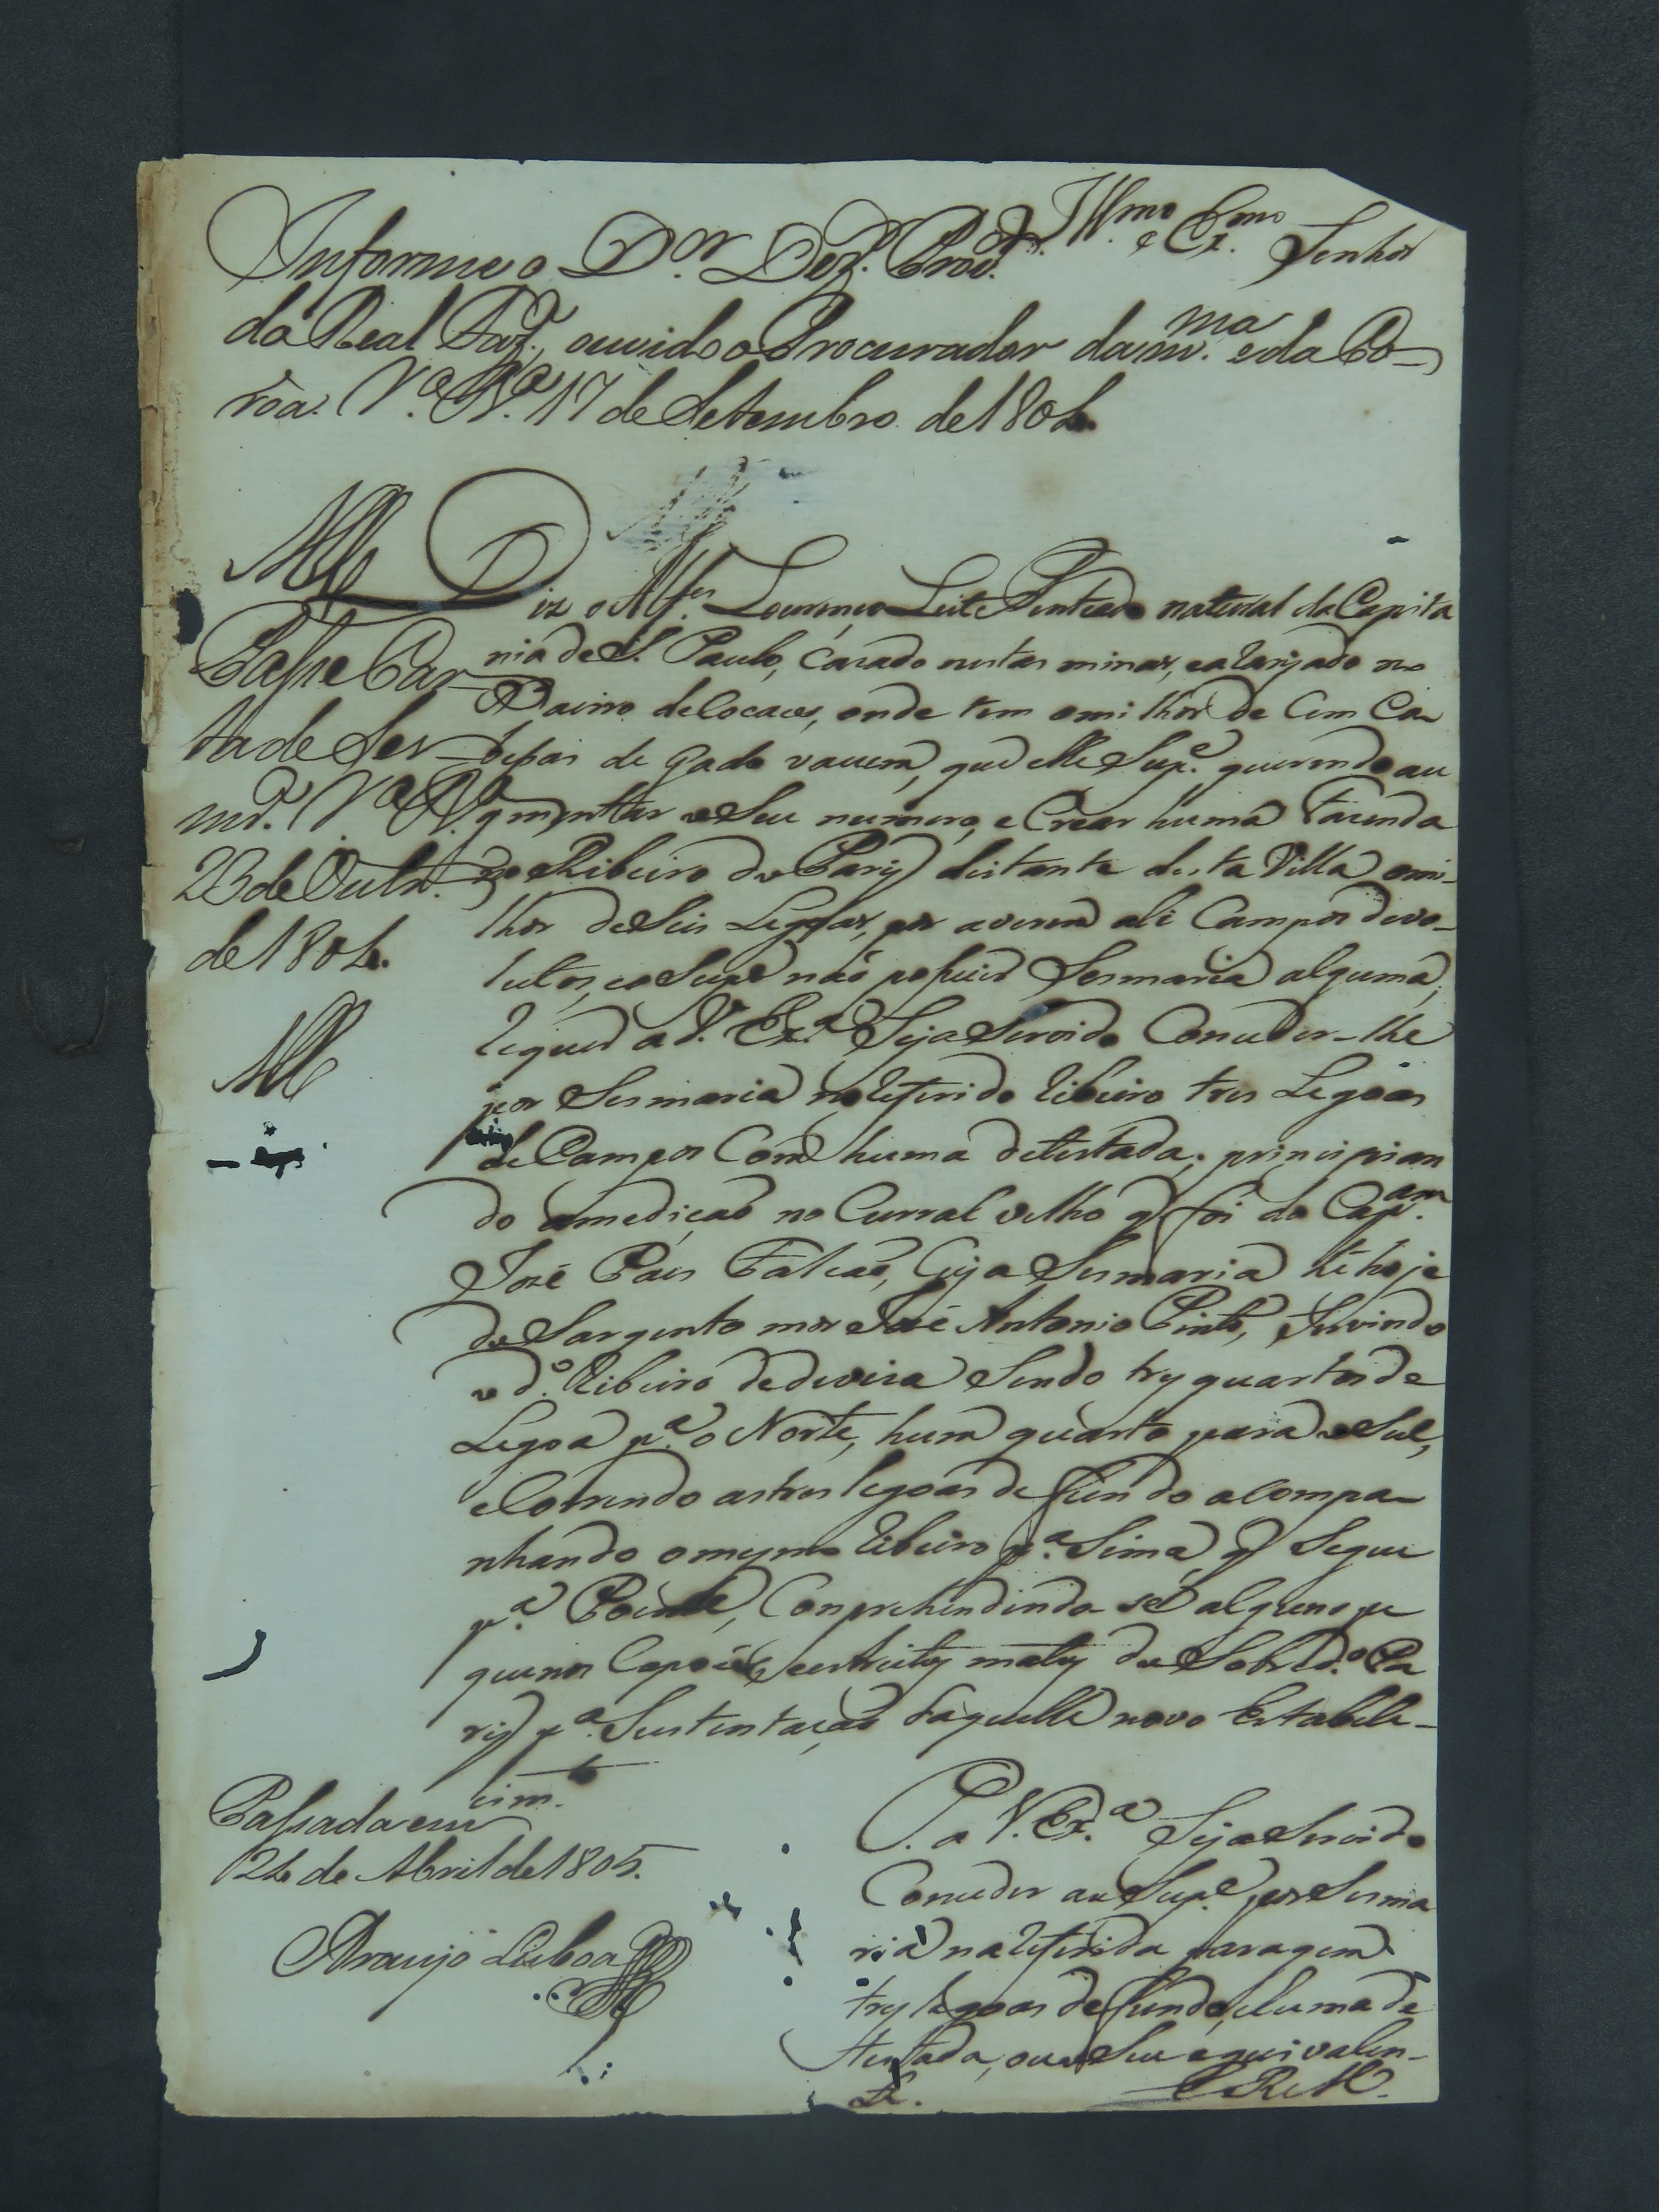 Illmo e Exmo Senhor
Informe o Dor Dezor Provor
da Real Fazda, ouvido o Procurador da mma e da Co-
rôa. Va Ba 17 de Setembro de 1804.
Diz o Alfes Lourenço Leite Penteado natural da Capita
nia de S. Paulo, cazado nestas minas, e arranjado no
Bairro de Cocaes, onde tem o milhor de Cem Ca-
beças de gado vacum, que elle Supe querendo au
gmentar o Seu numero, e Crear huma Fazenda
no Ribeiro do Pary distante desta Villa o mi-
lhor de Seis Legoas, por averem ali Campos devo-
lutos, e o Supe não possuir Sesmaria alguma,
requer a V. Exa Seja Servido Conceder-lhe
por Sesmaria no referido ribeiro tres Legoas
de Campos Com huma de testada; principian
do a medição no Curral velho q foi do Capam
José Paes Falcaõ, Cuja Sesmaria hé hoje
do Sargento mor José Antonio Pinto, Servindo
o do Ribeiro de devisa Sendo trez quartos de
Legoa pa o Norte, hum quarto para o Sul,
e Correndo as tres legoas de fundo acompa-
nhando o mesmo ribeiro pa Sima, q Segue
pa Poente, Comprehendendo-se alguns pe
quenos Capões e estreitos matos do Sobredo Pa
ry pa Sustentação daquelle novo Estabele-
cimto
P. a V. Exa Seja Servido
Conceder ao Supe por Sesma
ria na referida paragem
trez legoas de fundo, e huma de
testada, ou o Seu equivalen-
te.
E R Mce
Passe Car-
ta de Ses-
mra. Va Ba
23 de Outbro
de 1804.
Passada em
24 de Abril de 1805.
Araujo Lisboa